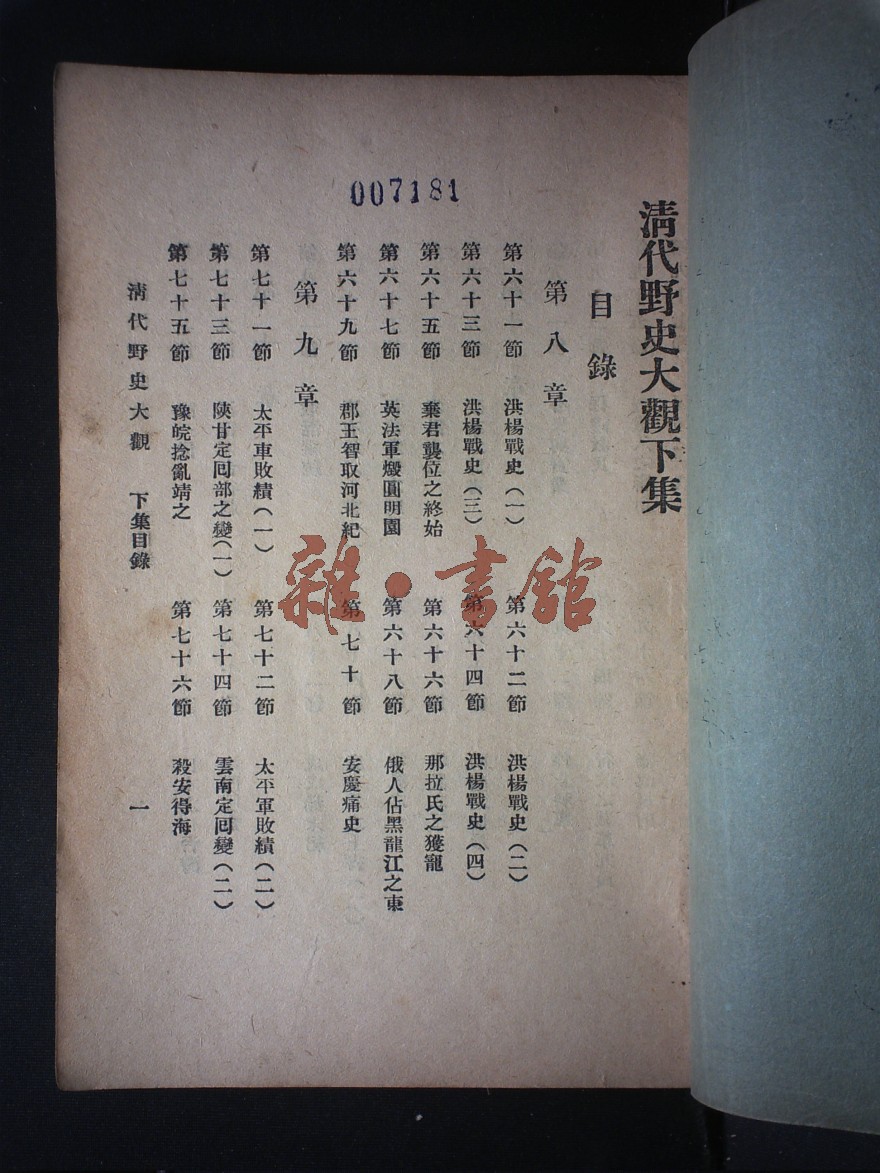 清代野史大觀下集
目錄
第八章
第六十一節 洪楊戰史(一) 第六十二節 洪楊戰史(二)
第六十三節 洪楊戰史(三) 第六十四節 洪楊戰史(四)
第六十五節 棄君襲位之終始 第六十六節 那拉氏之獲寵
第六十七節 英法軍燬圓明園 第六十八節 俄人佔黑龍江之東
第六十九節 郡王智取河北紀 第七十節 安慶痛史
第九章
第七十一節 太平車敗績(一) 第七十二節 太平軍敗績(二)
第七十三節 陝甘定囘部之變(一) 第七十四節 雲南定囘變(二)
第七十五節 豫皖捻亂靖之 第七十六節 殺安得海
清代野史大觀 下集目錄 一
007181
雜·書館